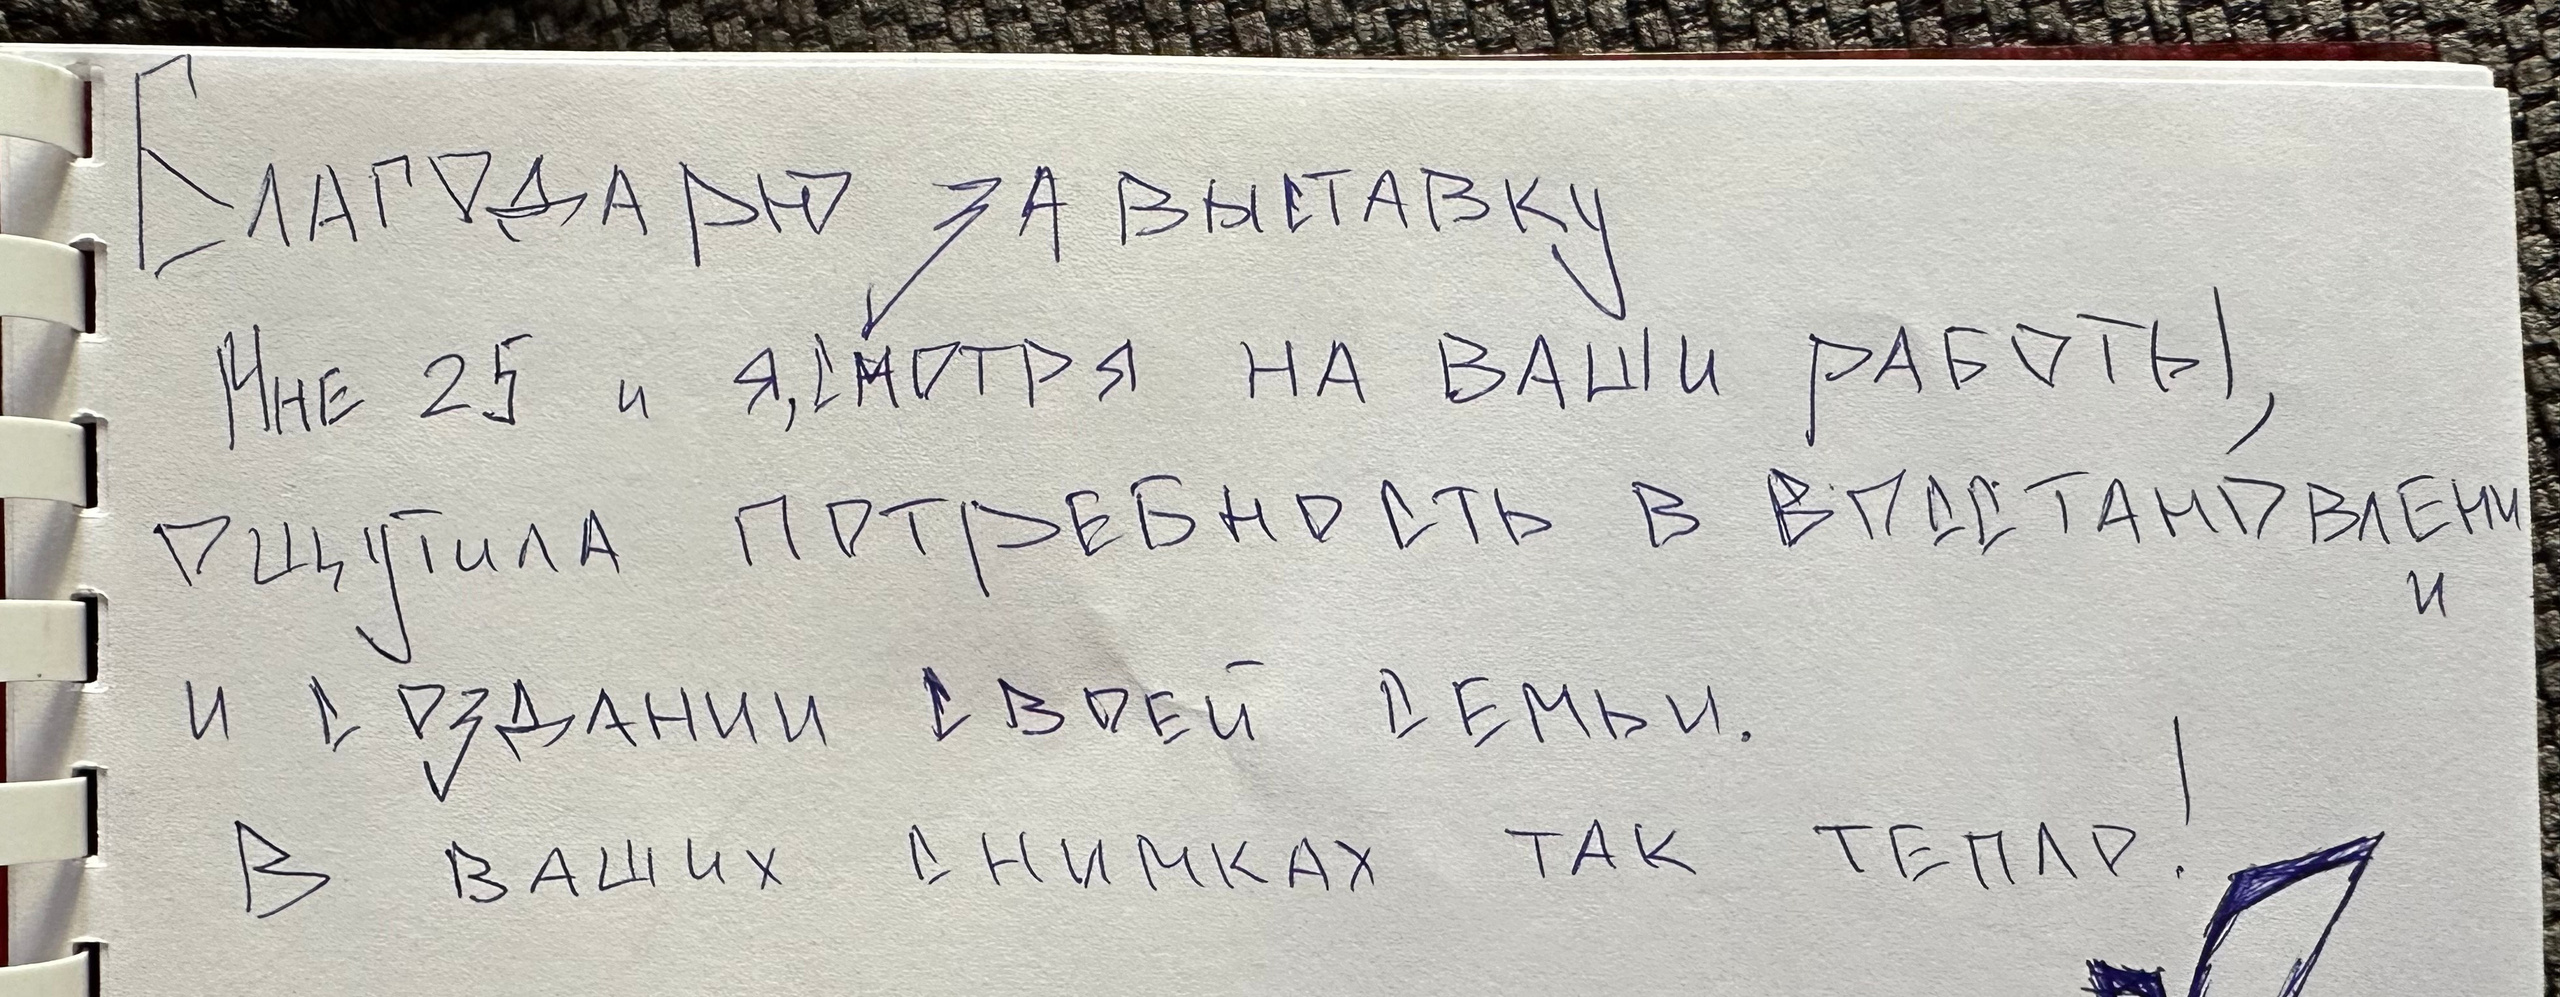 Благодарю за выставку
Мне 25 и я, смотря на ваши работы,
ощутила потребность в восстановлени
и
и создании своей семьи.
В ваших снимках так тепло!